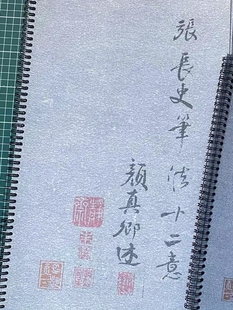 張長史筆法十二意
顏真卿述